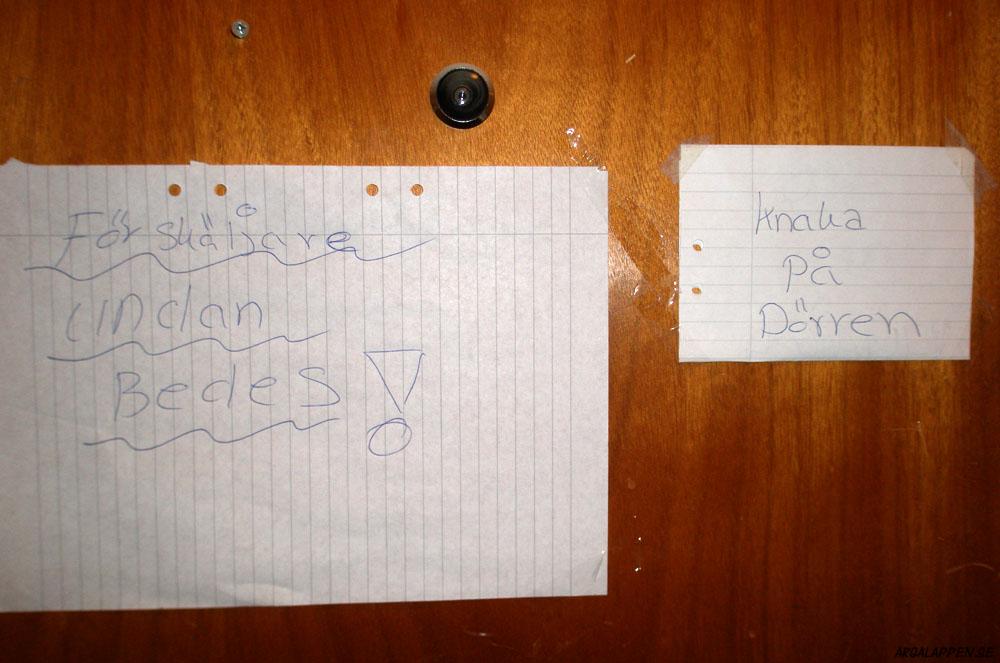 För skäljare
undan
Bedes !
Knaka
på
Dörren
ARGALAPPEN.SE